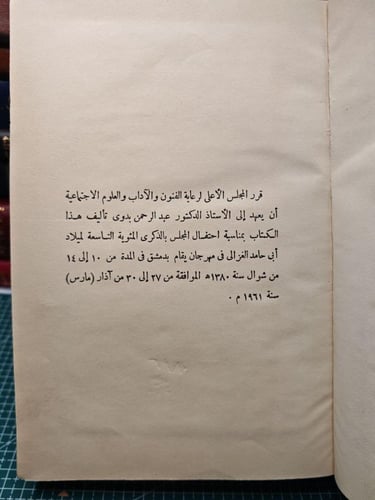 قرر المجلس الأعلى لرعاية الفنون والآداب والعلوم الاجتماعية
أن يعهد إلى الأستاذ الدكتور عبد الرحمن بدوى تأليف هذا
الكتاب بمناسبة احتفال المجلس بالذكرى المئوية التاسعة لميلاد
أبى حامد الغزالى فى مهرجان يقام بدمشق فى المدة من ١٠ إلى ١٤
من شوال سنة ١٣٨٠ﻫ الموافقة من ٢٧ إلى ٣٠ من آذار (مارس)
سنة ١٩٦١ م ٠